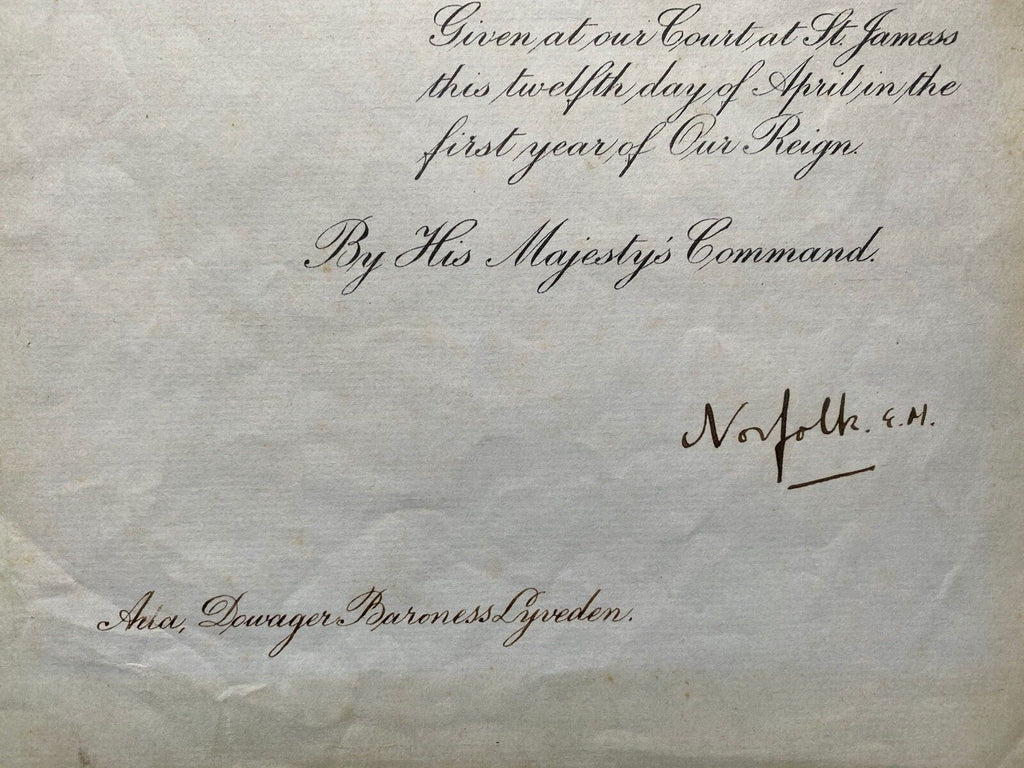 Given at our Court at St. Jamess
this twelfth day of April in the
first year of Our Reign.
By His Majesty's Command.
Norfolk. E.M.
Dowager Baroness Lyveden.